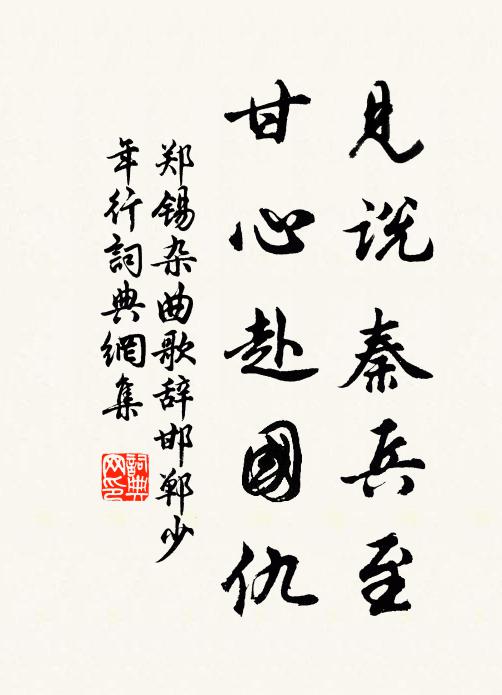 见说秦兵至
甘心赴國仇
郑锡杂曲歌辞邯郸少
年行詞典網集
詞典
网印